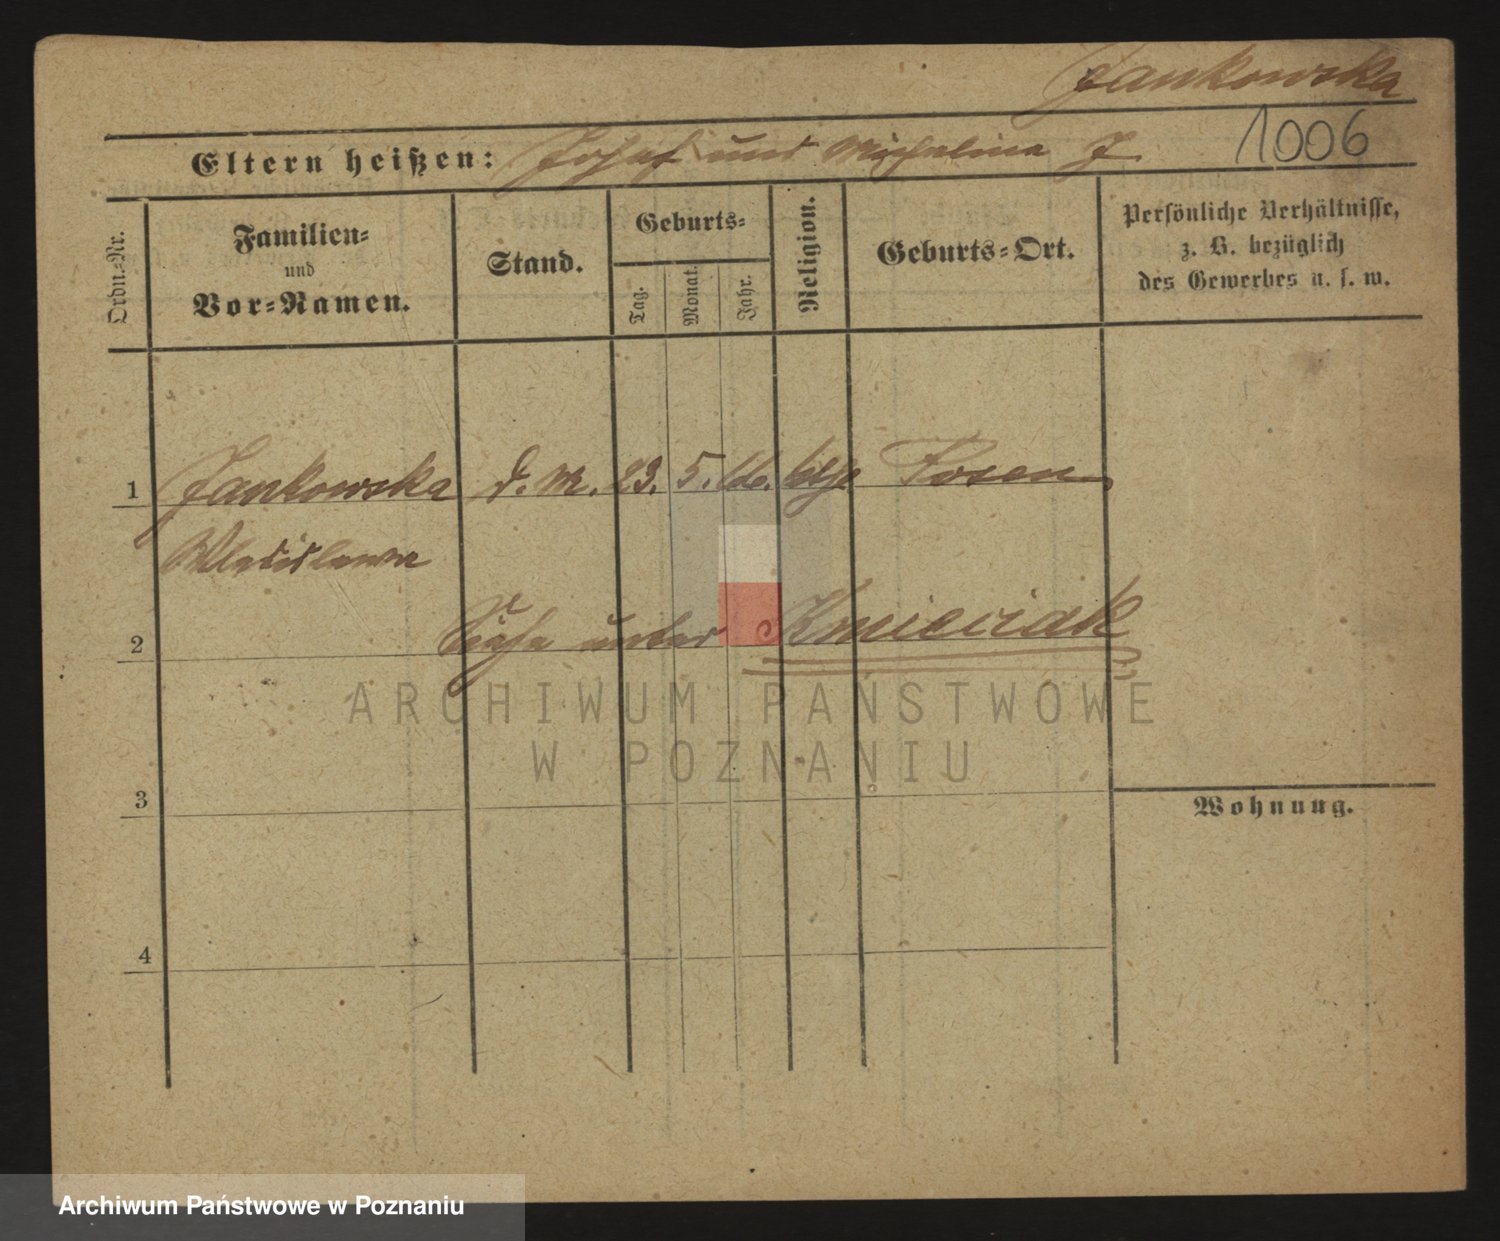 Jankowska
Eltern heißen: Josef und Michalina J.
1006
Ordn.-Nr.
Familien-
und
Vor-Namen.
Stand.
Geburts-
Tag.
Monat.
Jahr.
Religion.
Geburts-Ort.
Persönliche Verhältnisse,
z. B. bezüglich
des Gewerbes u. s. w.
1 Jankowska d. M. 23. 5. 66. kth Posen
Wladislawa
2 Siehe unter Kmieciak
ARCHIWUM PAŃSTWOWE
W POZNANIU
3
Wohnung.
4
Archiwum Państwowe w Poznaniu